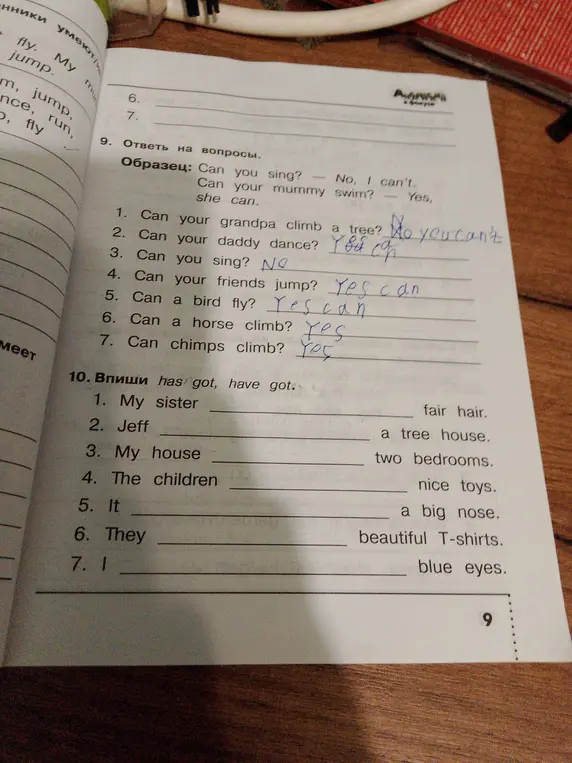 нники умеют
fly. My m
jump.
m, jump,
nce, run,
o, fly
меет
6.
7.
9. Ответь на вопросы.
Образец: Can you sing? — No, I can't.
Can your mummy swim? — Yes,
she can.
1. Can your grandpa climb a tree? No you can't
2. Can your daddy dance? Yes
3. Can you sing? No
4. Can your friends jump? Yes can
5. Can a bird fly? Yes can
6. Can a horse climb? Yes
7. Can chimps climb? Yes
10. Впиши has got, have got.
1. My sister fair hair.
2. Jeff a tree house.
3. My house two bedrooms.
4. The children nice toys.
5. It a big nose.
6. They beautiful T-shirts.
7. I blue eyes.
9